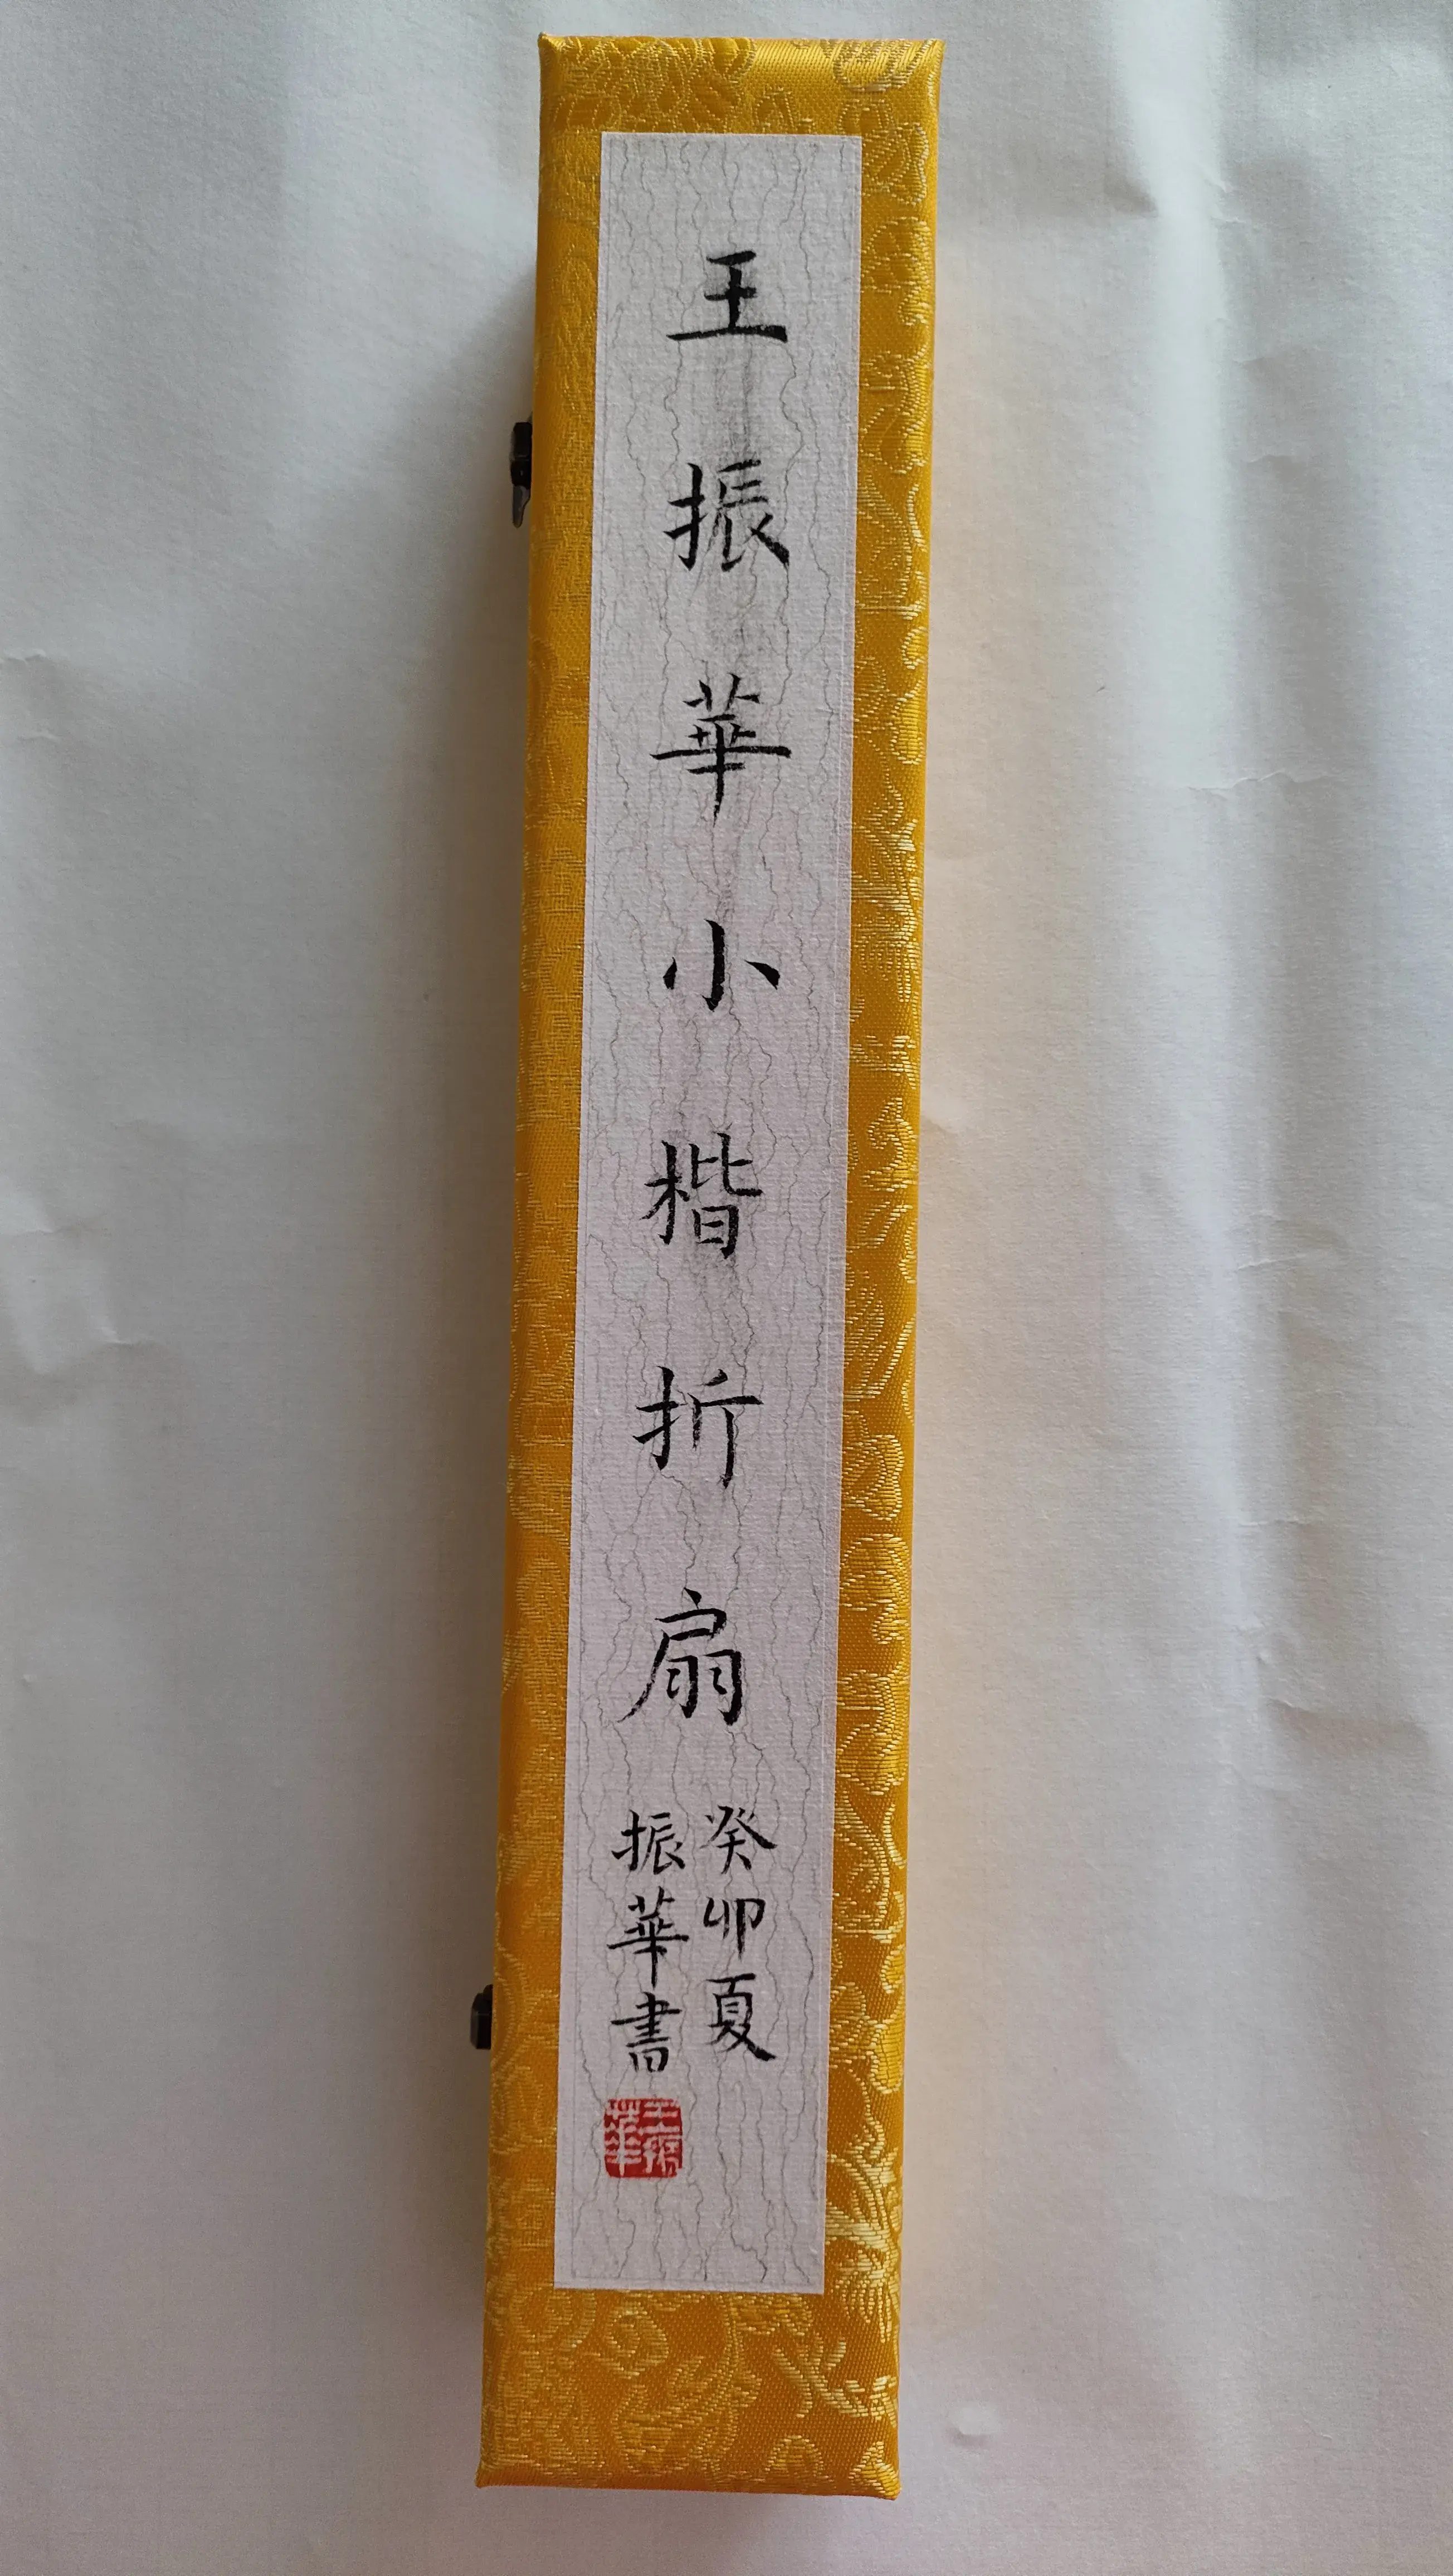 王振華小楷折扇
癸卯夏
振華書
王振華